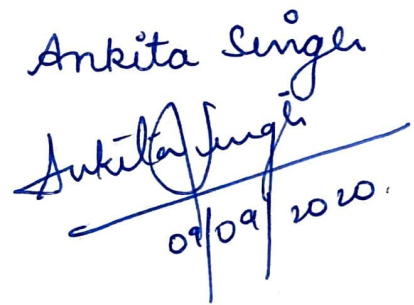 Ankita Singh
Ankita Singh
09/09/2020.